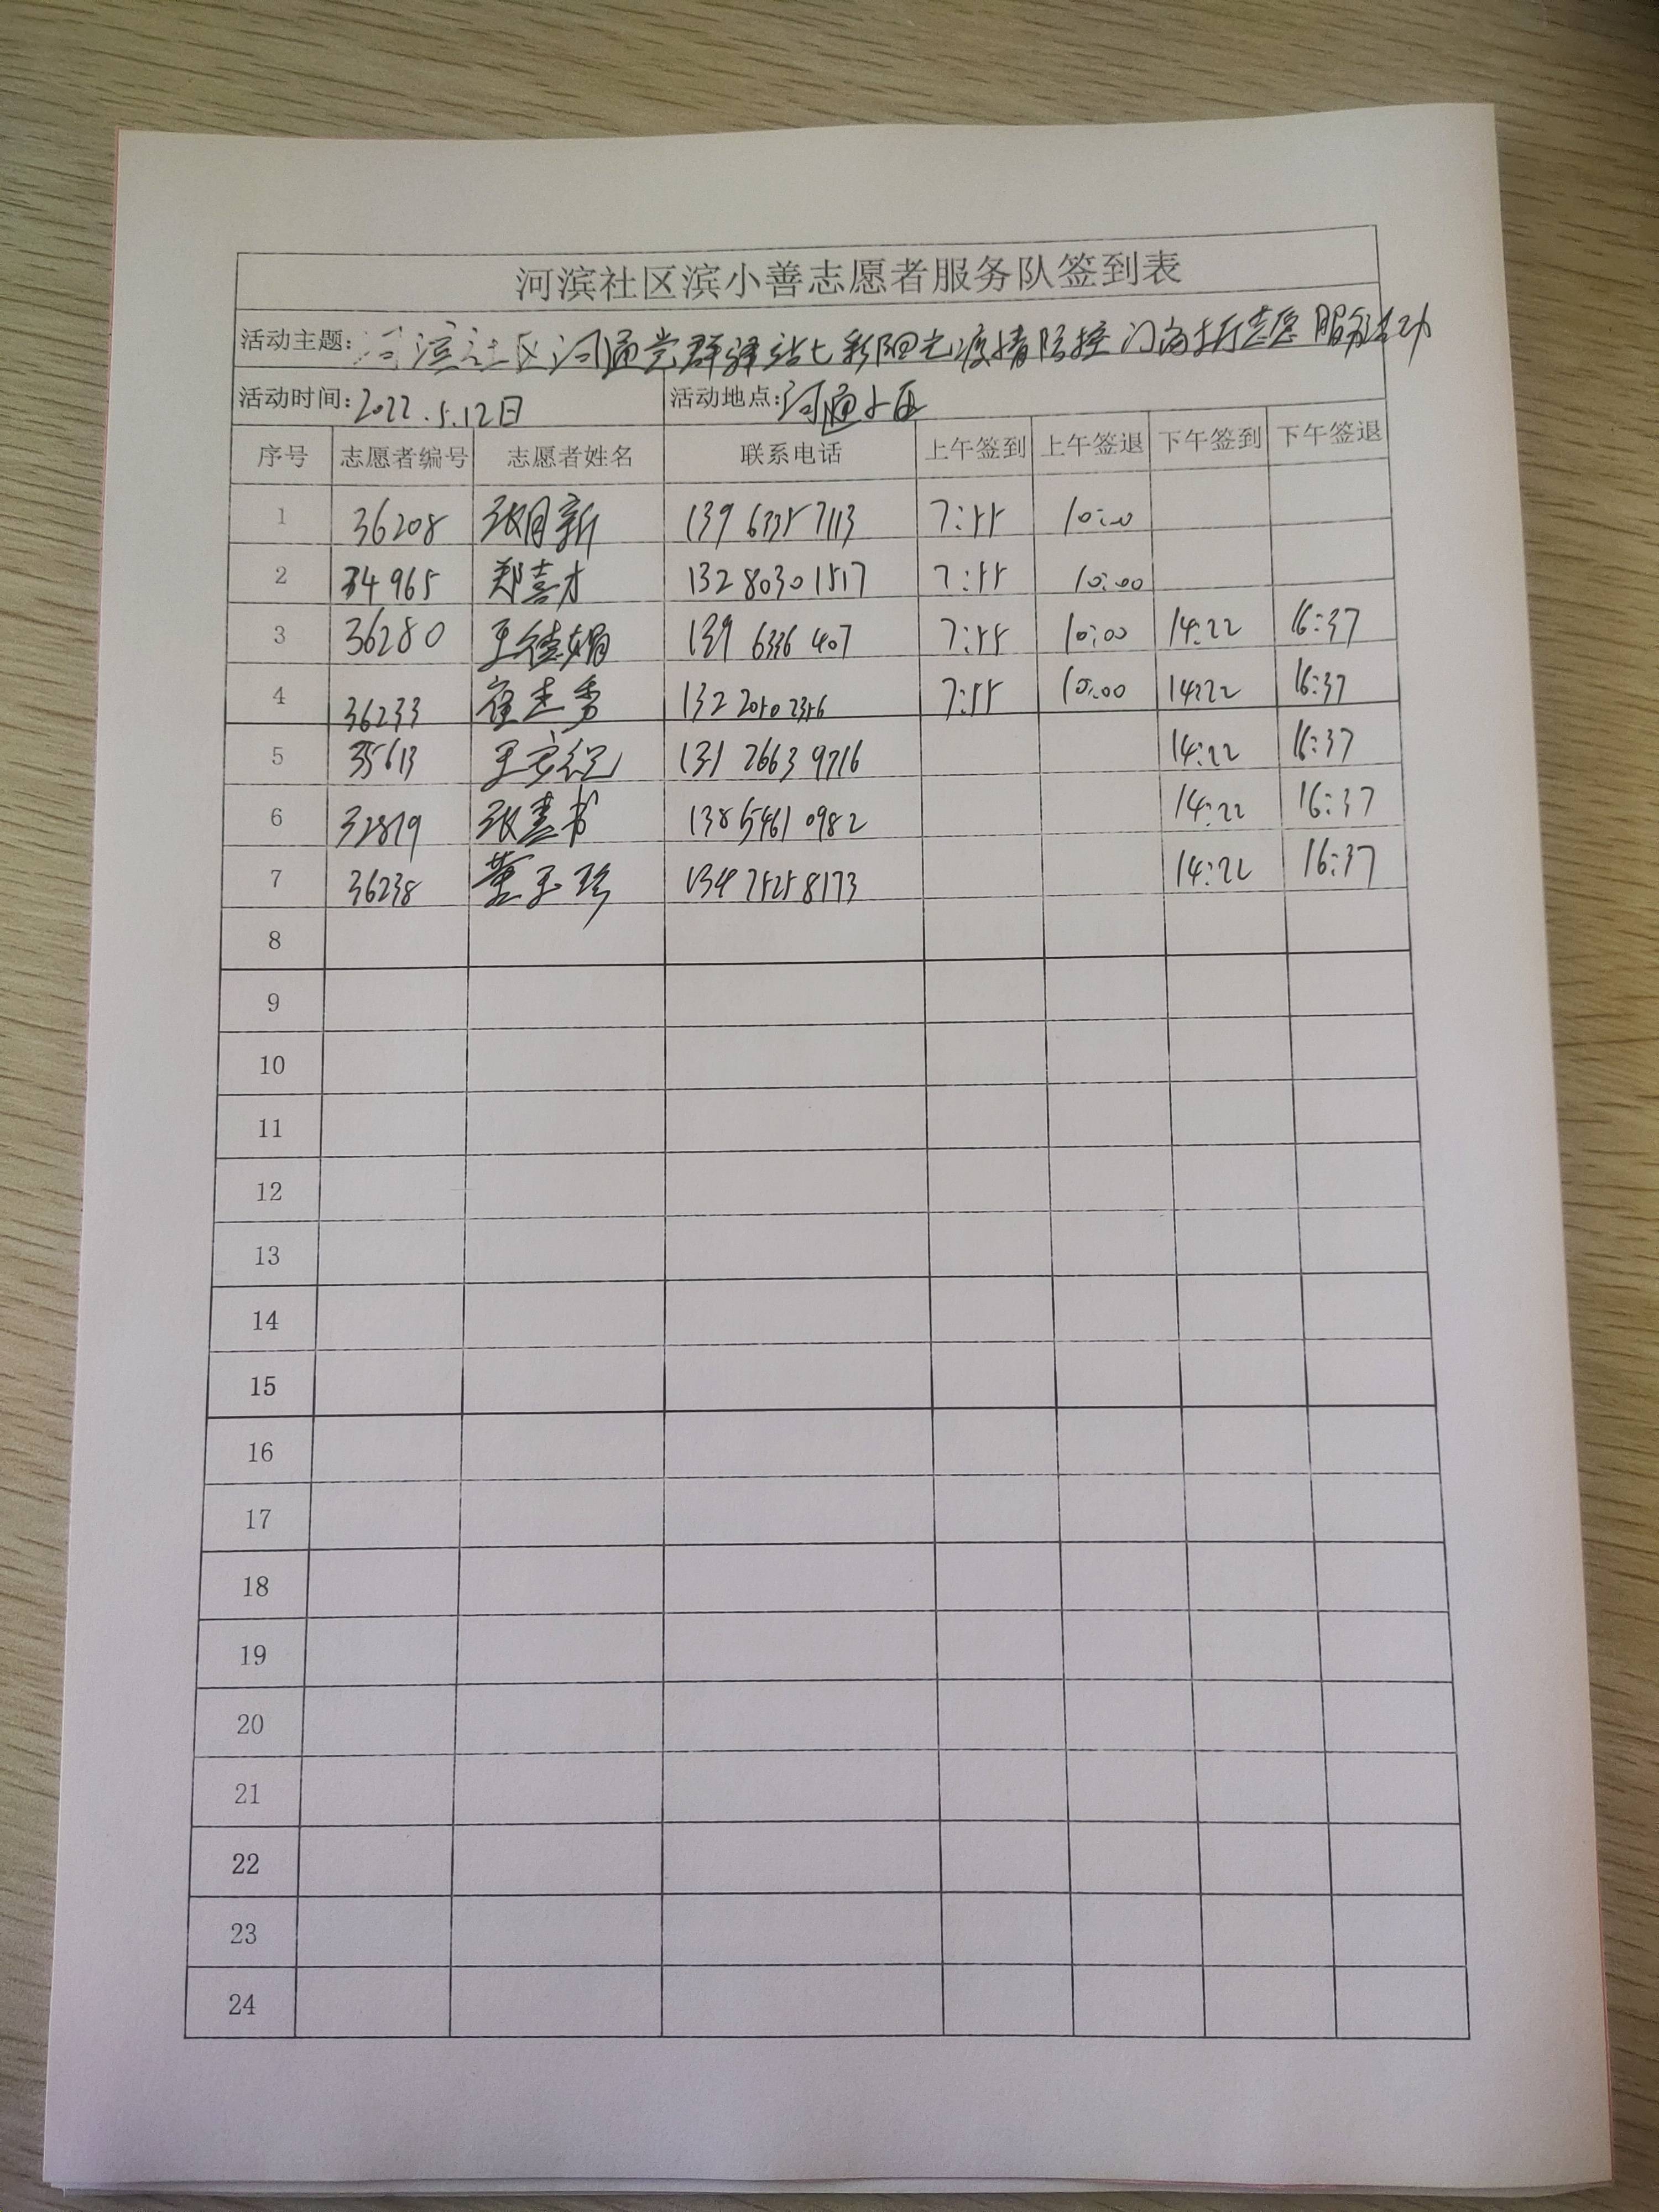 河滨社区滨小善志愿者服务队签到表
活动主题:河滨社区河通党群驿站七彩阳光疫情防控门岗执行志愿服务活动
活动时间:2022.5.12日 活动地点:河通小区
序号 志愿者编号 志愿者姓名 联系电话 上午签到 上午签退 下午签到 下午签退
1 36208 张月新 139 6335 7113 7:55 10:00
2 34965 郑喜才 132 8030 1517 7:55 10:00
3 36280 王德娟 139 6336 407 7:55 10:00 14:22 16:37
4 36233 崔志秀 132 2050 2356 7:55 10:00 14:22 16:37
5 35613 王 131 7663 9716 14:22 16:37
6 32819 张素书 138 5461 0982 14:22 16:37
7 36238 董玉珍 134 7525 8173 14:22 16:37
8
9
10
11
12
13
14
15
16
17
18
19
20
21
22
23
24